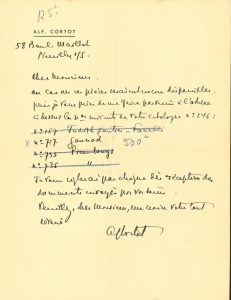 ALF. CORTOT
58 Boul. Maillot
Neuilly s/S.
Chers Messieurs
au cas où ces pièces seraient encore disponibles
puis-je vous prier de me faire parvenir à l'adresse
ci-dessus les nos suivants de votre catalogue no 246 :
no 717 Gounod 500
no 738 "
Je vous réglerai par chèque dès réception des
documents envoyés par vos soins.
Veuillez, chers Messieurs, me croire votre tout
dévoué
Alf Cortot